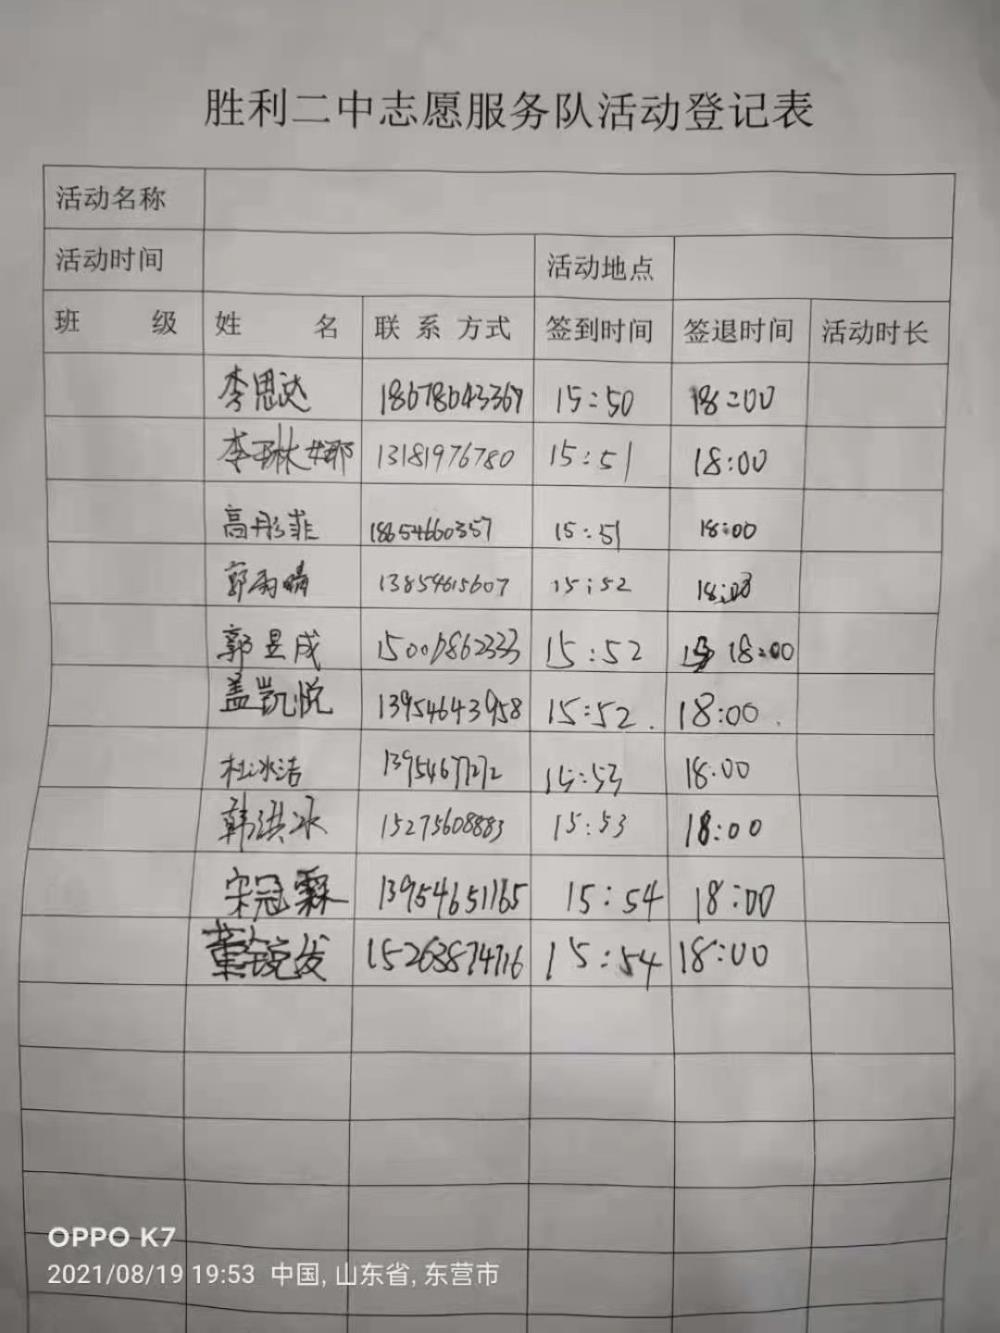 胜利二中志愿服务队活动登记表
活动名称
活动时间 活动地点
班 级 姓 名 联系方式 签到时间 签退时间 活动时长
李思达 18678643367 15:50 18:00
李琳娜 13181976780 15:51 18:00
高彤菲 18654660357 15:51 18:00
郭雨晴 13854615607 15:52 18:00
郭昱成 15:52 18:00
盖凯悦 13954643958 15:52. 18:00.
杜冰洁 13954677272 15:53 18:00
韩洪冰 15275608883 15:53 18:00
宋冠霖 13954651165 15:54 18:00
董锐发 15263874716 15:54 18:00
OPPO K7
2021/08/19 19:53 中国, 山东省, 东营市